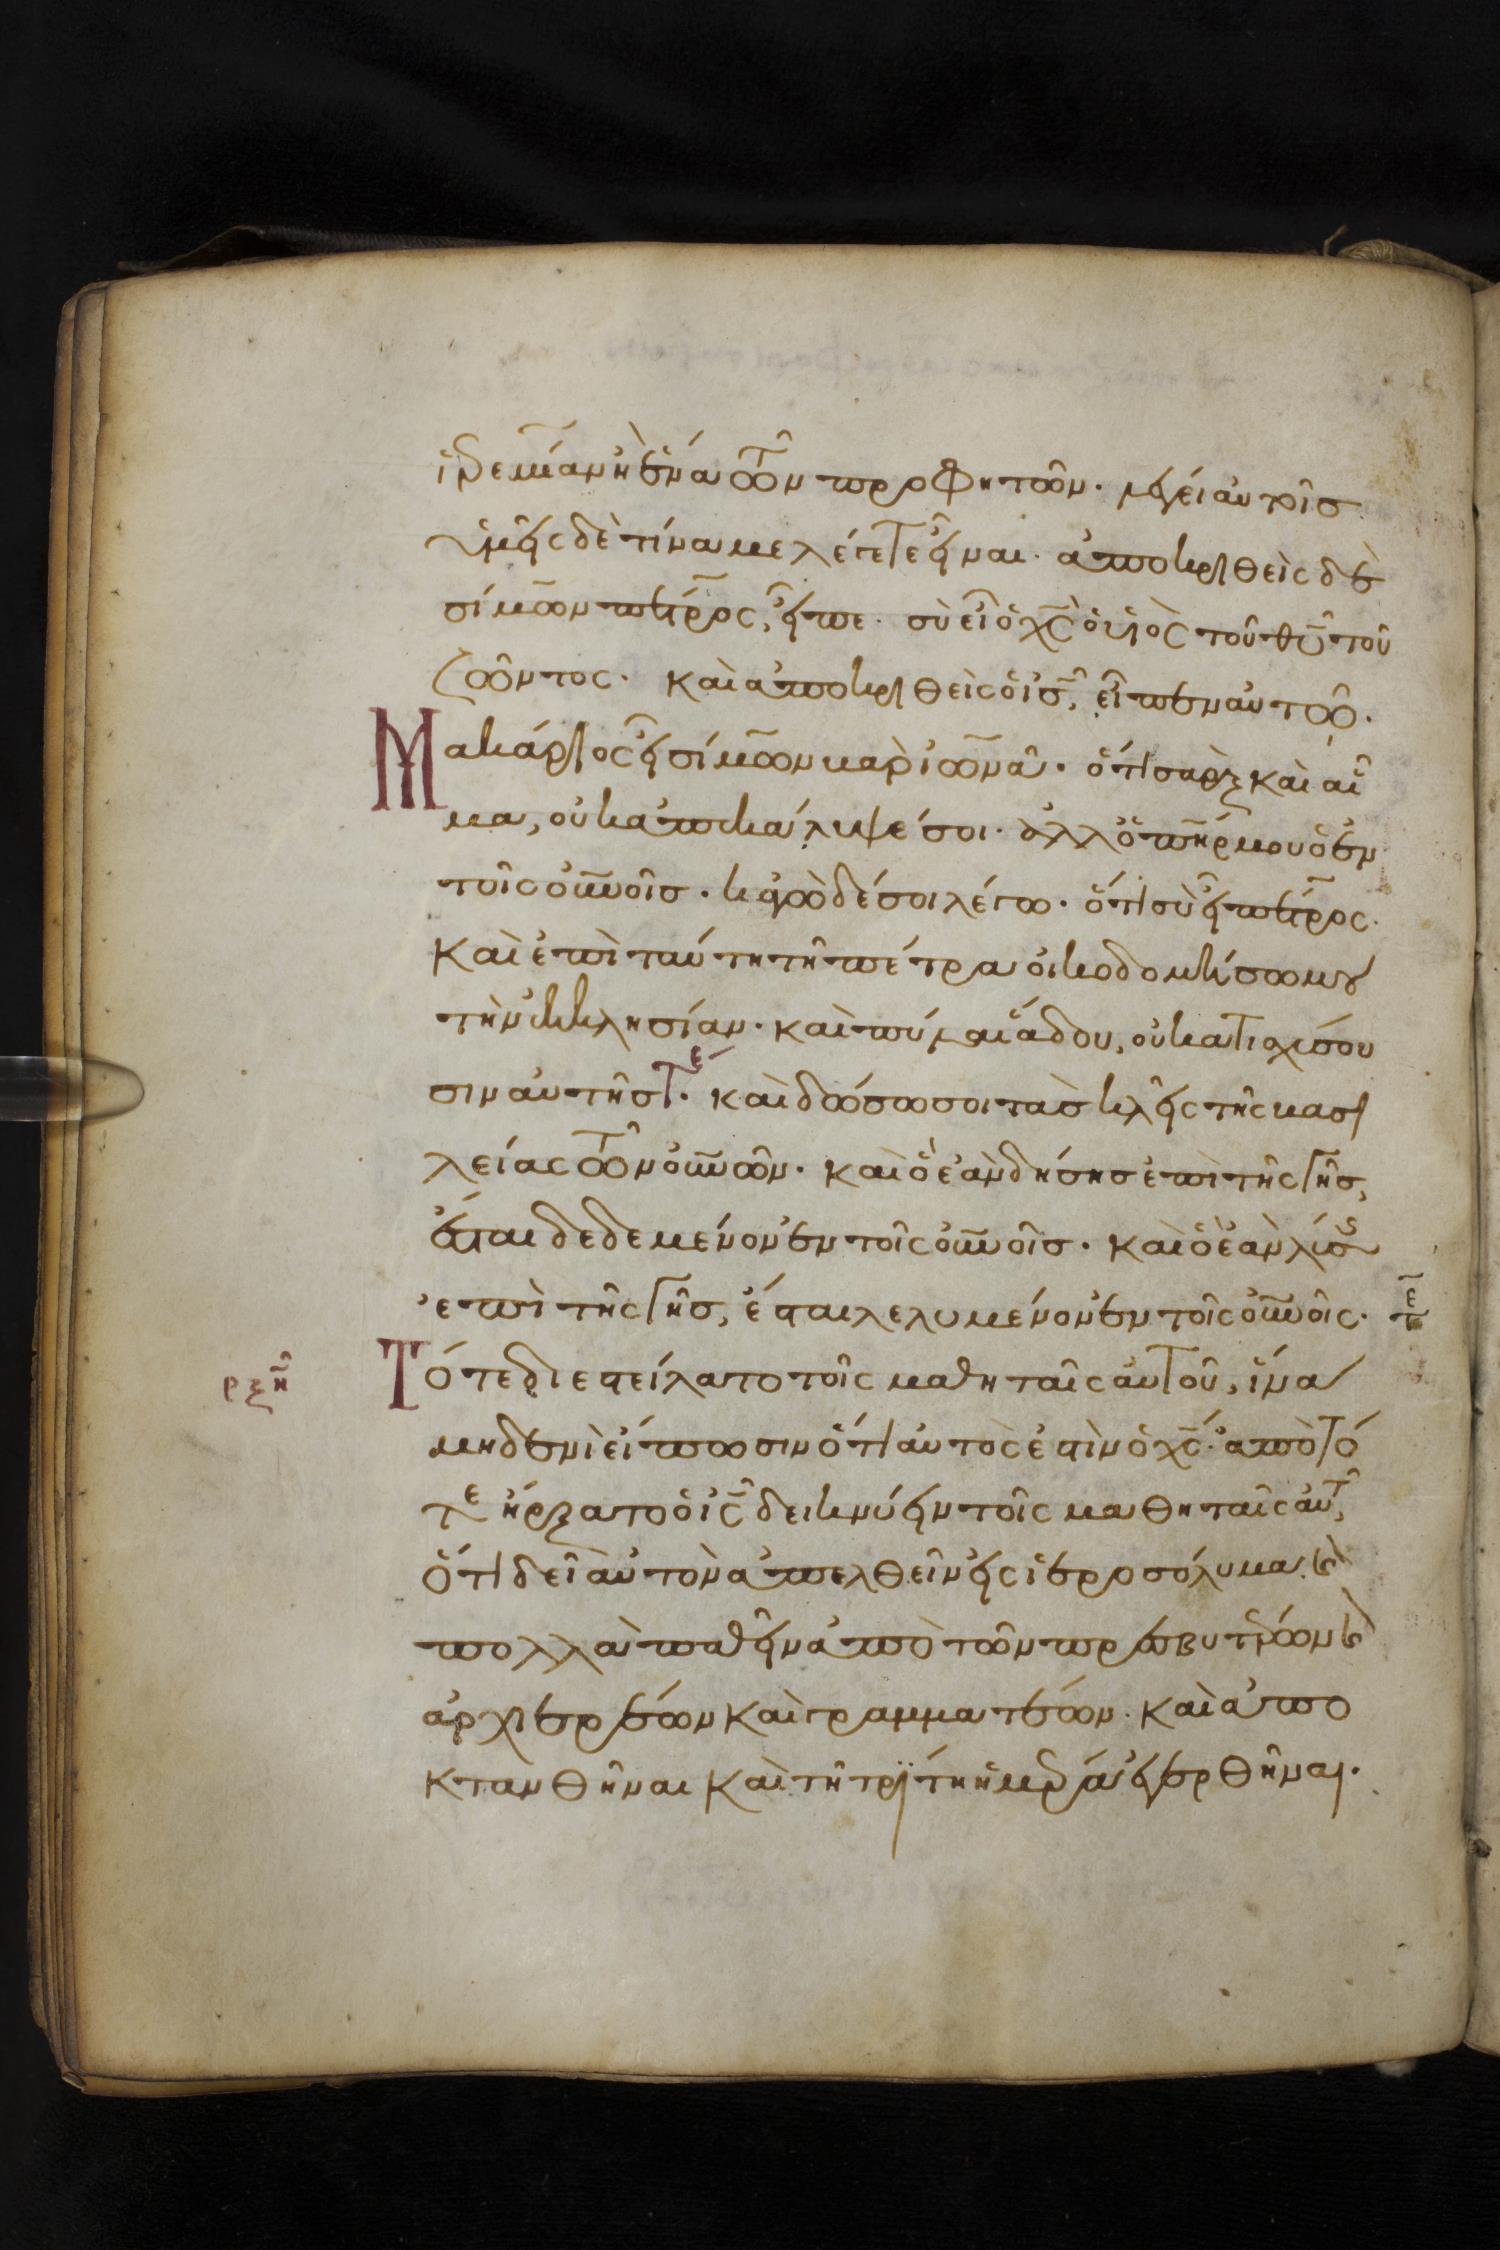 ἱερεμίαν ἢ ἕνα τῶν προφητῶν· λέγει αὐτοῖσ
ὑμεῖς δὲ τίνα με λέγετε εἶναι· ἀποκριθεὶς δὲ
σίμων πέτρος, εἶπε· σὺ εἶ ὁ χς ὁ υἱὸς τοῦ θυ τοῦ
ζῶντος· καὶ ἀποκριθεὶς ὁ ις, εἶπεν αὐτῶ·
Μακάριος εἶ σίμων βαρ ἰωνᾶ· ὅτι σαρξ καὶ αἷ
μα, οὐκ ἀπεκάλυψέ σοι· ἀλλ ὁ πηρ μου ὁ ἐν
τοῖς οὐνοῖσ· κἀγὼ δέ σοι λέγω· ὅτι σὺ εἶ πέτρος·
καὶ ἐπὶ ταύτη τῆ πέτρα οἰκοδομήσω μου
τὴν ἐκκλησίαν· καὶ πύλαι ἅδου, οὐ κατισχύσου
σιν αὐτῆσ· καὶ δώσω σοι τὰσ κλεῖς τῆς βασι
λείας τῶν οὐνῶν· καὶ ὃ ἐὰν δήσησ ἐπὶ τῆς γῆσ,
ἔσται δεδεμένον ἐν τοῖς οὐνοῖσ· καὶ ὃ ἐὰν λύσῃς
ἐπὶ τῆς γῆσ, ἔσται λελυμένον ἐν τοῖς οὐνοῖς·
ρξη Τότε διεστείλατο τοῖς μαθηταῖς αὐτοῦ, ἵνα
μηδενὶ εἴπωσιν ὅτι αὐτός ἐστιν ὁ χς· ἀπὸ τό
τε ἤρξατο ὁ ις δεικνύειν τοῖς μαθηταῖς αὐτ,
ὅτι δεῖ αὐτὸν ἀπελθεῖν εἰς ἱεροσόλυμα· καὶ
πολλὰ παθεῖν ἀπὸ τῶν πρεσβυτέρων καὶ
ἀρχιερέων καὶ γραμματέων· καὶ ἀπο
κτανθῆναι καὶ τῆ τρίτη ἡμέρα ἐγερθῆναι·